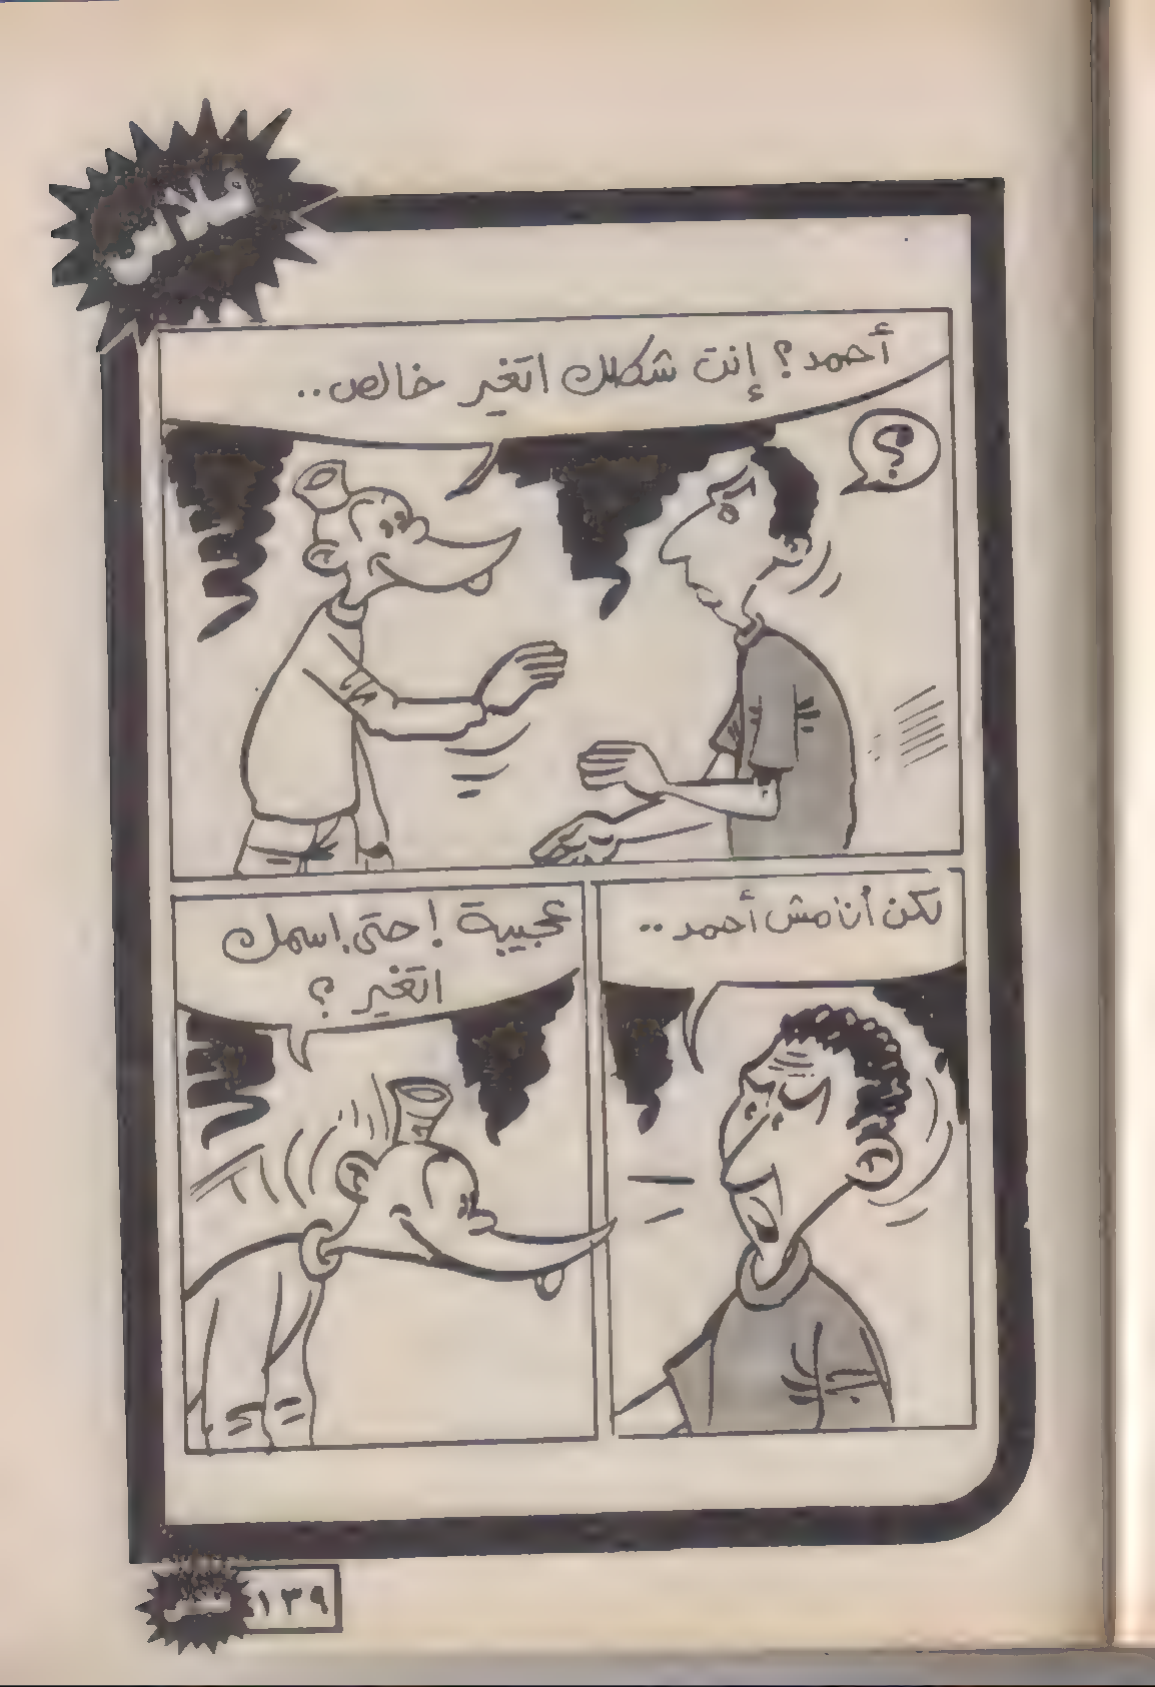 فلاش
أحمد؟ إنت شكلك اتغير خالص..
؟
لكن أنا مش أحمد..
عجيبة! حتى اسمك
اتغير؟
فلاش
١٣٩